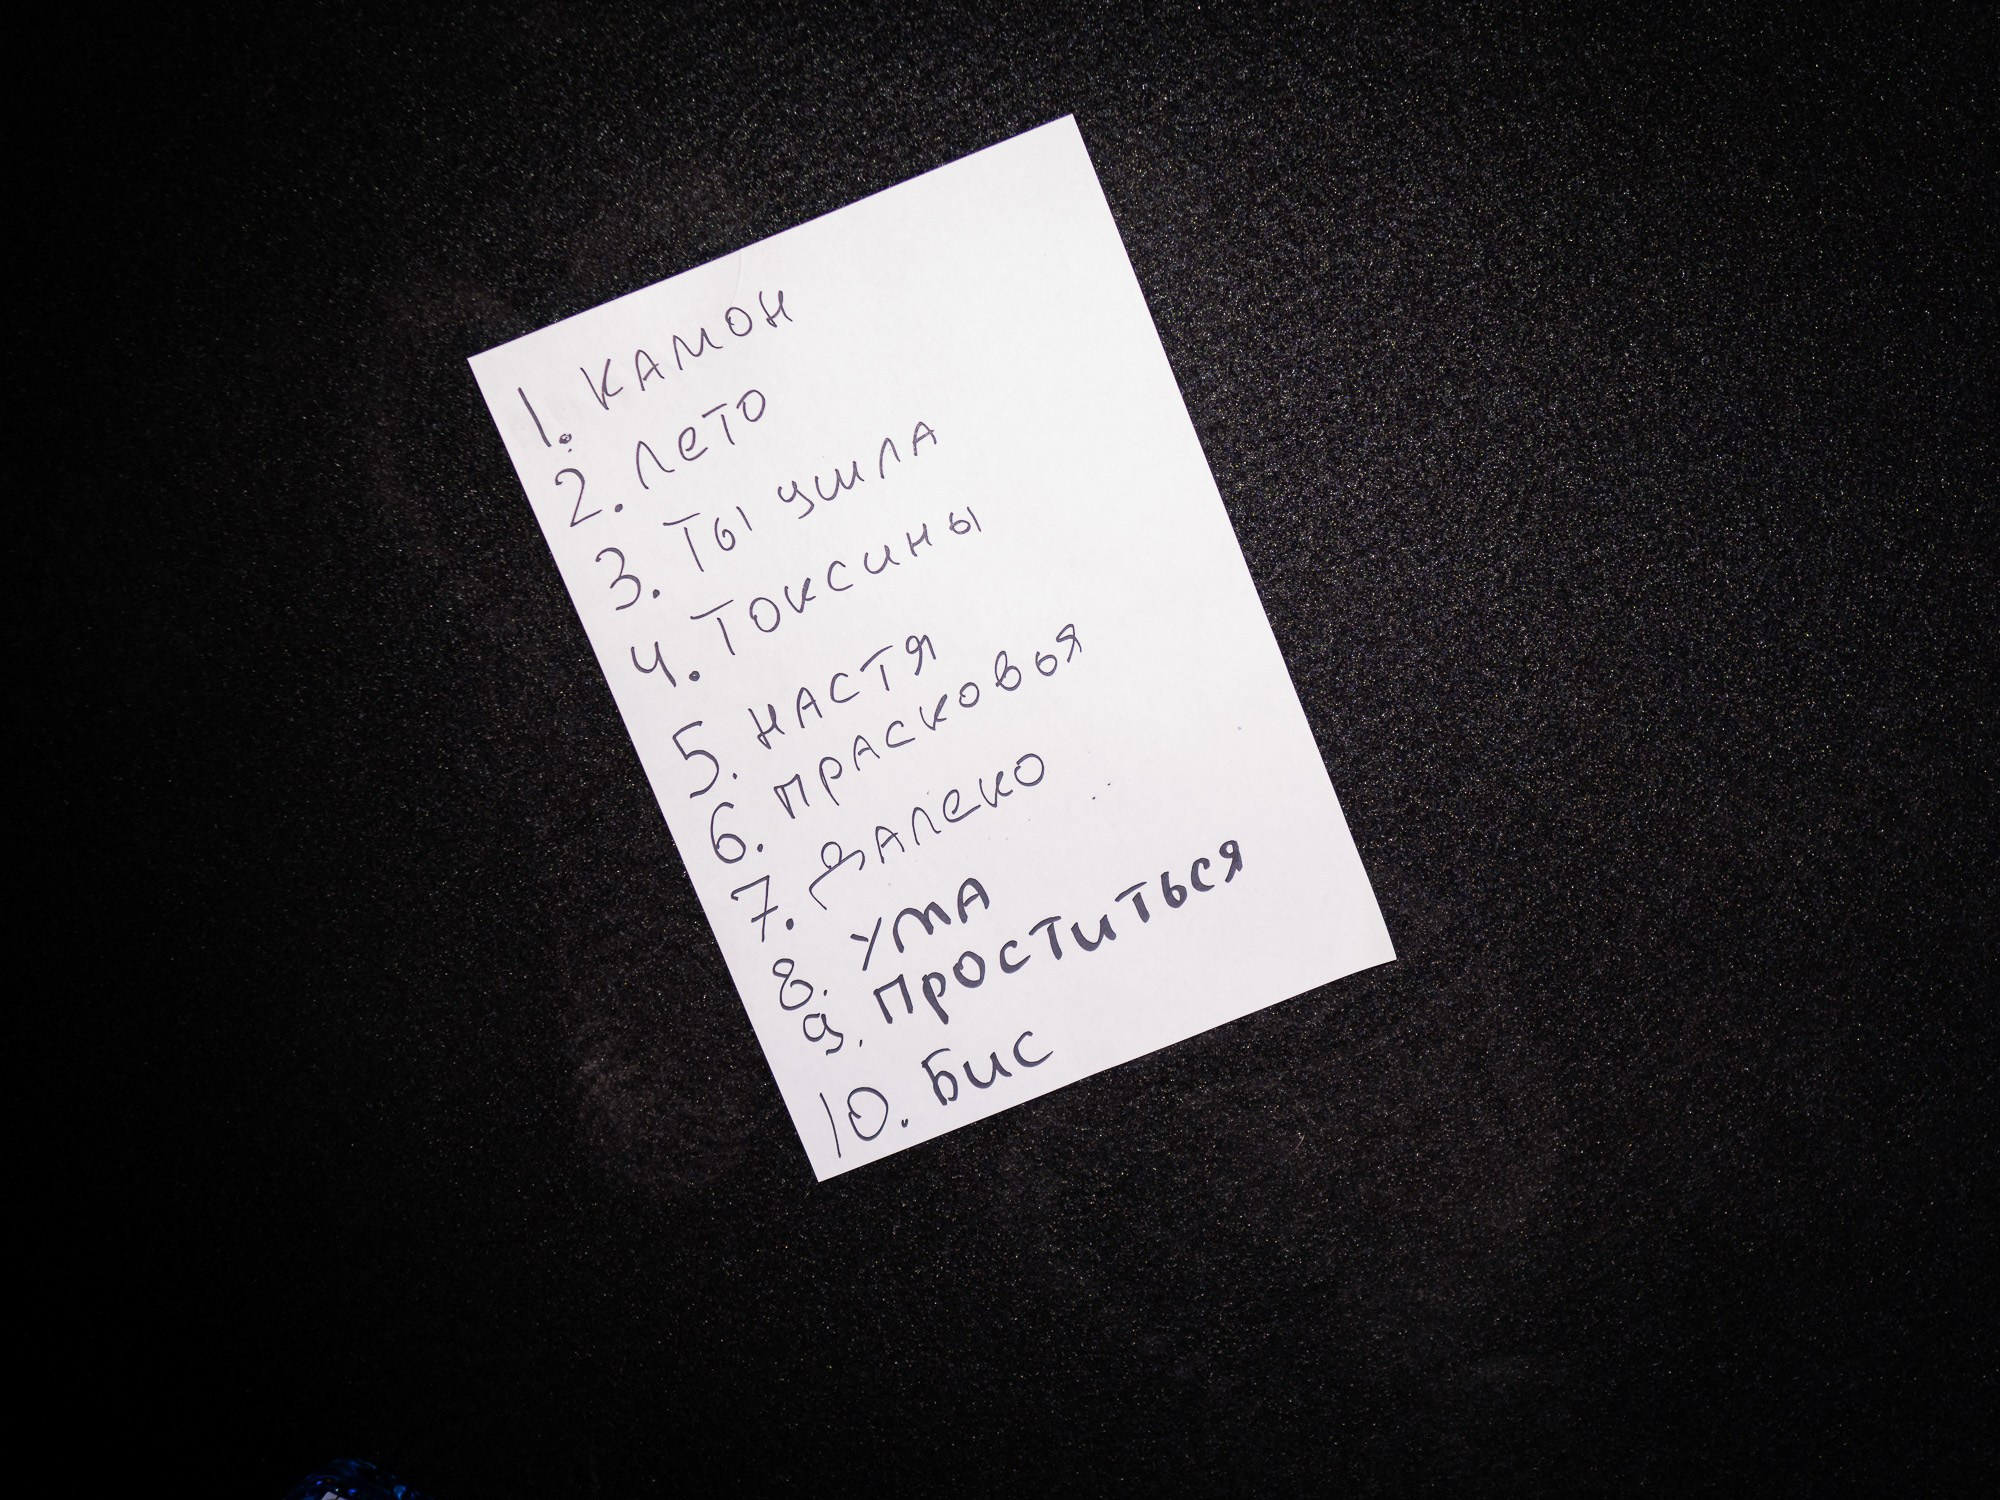 1. КАМОН
2. ЛеТО
3. Ты ушла
4. Токсины
5. НАСТЯ
6. ПРАСКОВЬЯ
7. ДАЛеКО
8. УМА
9. ПРОСТИТЬСЯ
10. Бис